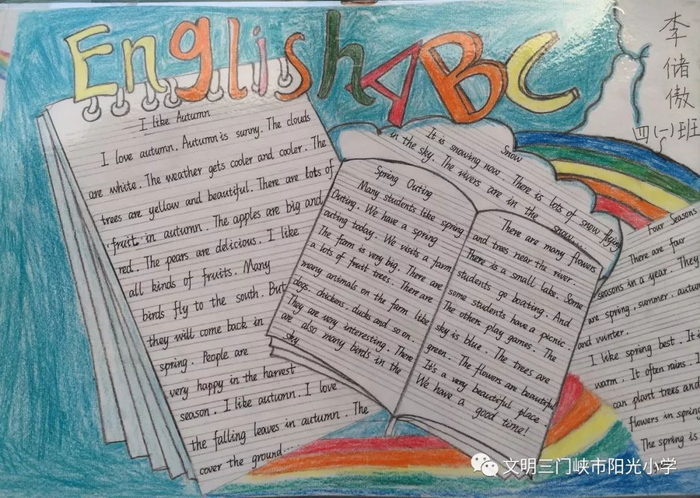 English ABC
李
储
傲
四(一)班
I like Autumn
I love autumn. Autumn is sunny. The clouds
are white. The weather gets cooler and cooler. The
trees are yellow and beautiful. There are lots of
fruit in autumn. The apples are big and
red. The pears are delicious. I like
all kinds of fruits. Many
birds fly to the south. But
they will come back in
spring. People are
very happy in the harvest
season. I like autumn. I love
the falling leaves in autumn. The
cover the ground
Snow
It is snowing now. There is lots of snow flying
in the sky. The rivers are in the snow
Spring Outing
Many students like spring
Outing. We have a spring
outing today. We visits a farm
The farm is very big. There are
a lots of fruit trees. There are
many animals on the farm like
dogs, chickens, ducks and so on.
They are very interesting. There
are also many birds in the
sky
There are many flowers
and trees near the river.
There is a small lake. Some
students go boating. And
some students have a picnic
The other play games. The
sky is blue. The trees are
green. The flowers are beautiful
It's a very beautiful place
We have a good time!
Four Seasons
There are four
seasons in a year. They
are spring, summer, autumn
and winter.
I like spring best. It
warm. It often rains. I
can plant trees and
flowers in spring
The spring is
文明三门峡市阳光小学